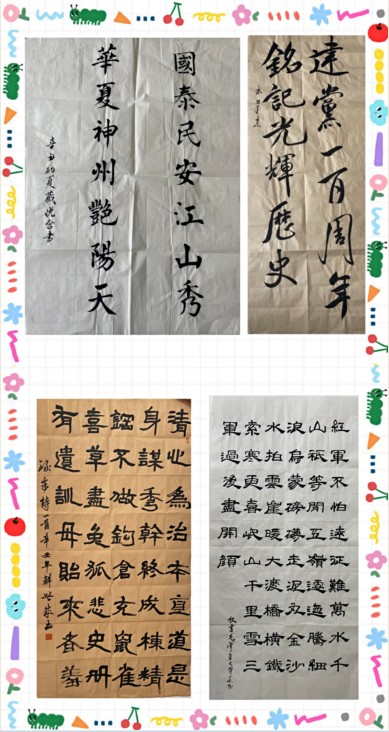 國泰民安江山秀
華夏神州艷陽天
建黨一百周年
銘記光輝歷史
清心為治本直道是
身謀秀幹終成棟精
鋼不做鉤倉充鼠雀
喜草盡兔狐悲史册
有遺訓毋貽來者羞
紅軍不怕遠征難萬水千
山祇等閒五嶺逶迤騰細
浪烏蒙磅礴走泥丸金沙
水拍雲崖暖大渡橋橫鐵
索寒更喜岷山千里雪三
軍過後盡開顏